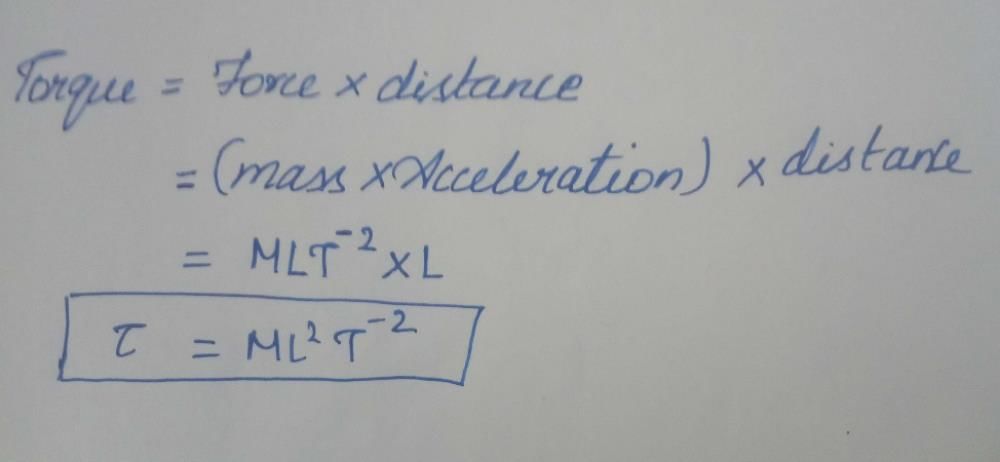 Torque = Force × distance
= (mass × Acceleration) × distance
= MLT⁻² × L
τ = ML² T⁻²